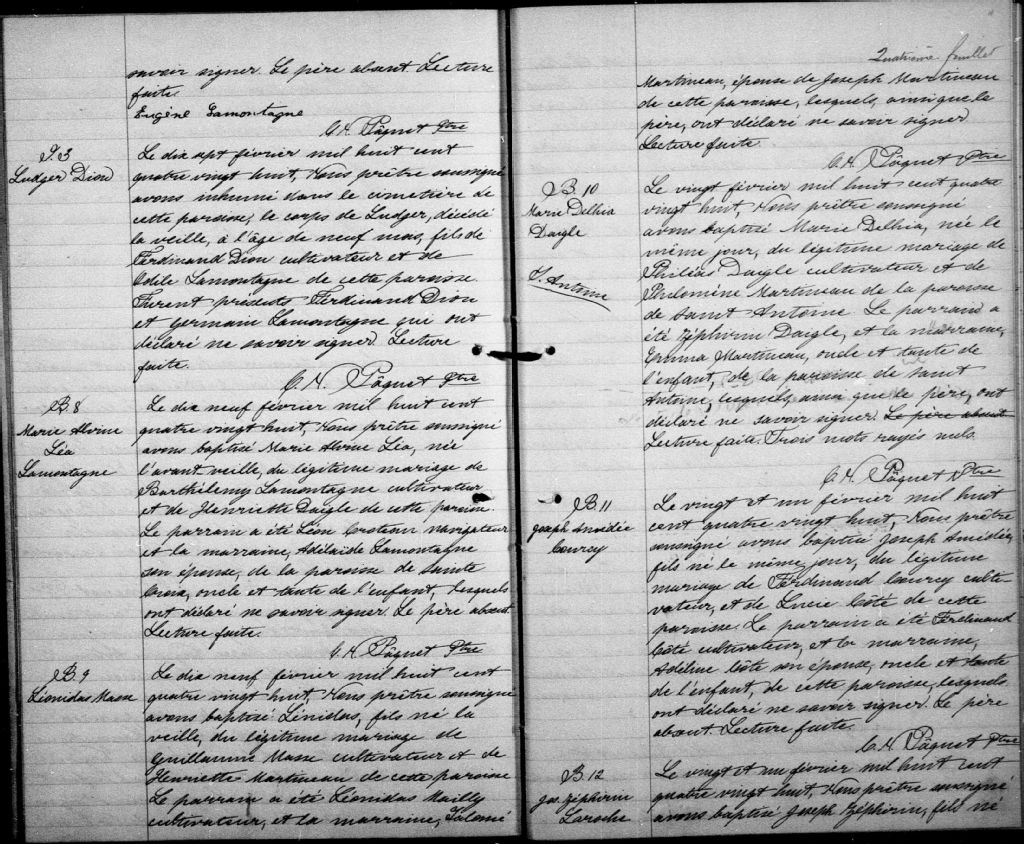 savoir signer. Le père absent. Lecture
faite.
Eugène Lamontagne
C. N. Pâquet Ptre
S. 3
Ludger Dion
Le dix sept février mil huit cent
quatre vingt huit, Nous prêtre soussigné
avons inhumé dans le cimetière de
cette paroisse, le corps de Ludger, décédé
la veille, à l'âge de neuf mois, fils de
Ferdinand Dion cultivateur et de
Odile Lamontagne de cette paroisse
Furent présents Ferdinand Dion
et Germain Lamontagne qui ont
déclaré ne savoir signer. Lecture
faite.
C. N. Pâquet Ptre
B. 8
Marie Alvine
Léa
Lamontagne
Le dix neuf février mil huit cent
quatre vingt huit, Nous prêtre soussigné
avons baptisé Marie Alvine Léa, née
l'avant veille, du légitime mariage de
Barthélemy Lamontagne cultivateur
et de Henriette Daigle de cette paroisse.
Le parrain a été Léon navigateur
et la marraine, Adelaïde Lamontagne
son épouse, de la paroisse de Sainte
Croix, oncle et tante de l'enfant, lesquels
ont déclaré ne savoir signer. Le père absent.
Lecture faite.
C. N. Pâquet Ptre
B. 9
Léonidas Masse
Le dix neuf février mil huit cent
quatre vingt huit, Nous prêtre soussigné
avons baptisé Lénidas, fils né la
veille, du légitime mariage de
Guillaume Masse cultivateur et de
Henriette Martineau de cette paroisse
Le parrain a été Léonidas Mailly
cultivateur, et la marraine, Salomé
Quatrième feuillet
Martineau, épouse de Joseph Martineau
de cette paroisse, lesquels, ainsi que le
père, ont déclaré ne savoir signer.
Lecture faite.
C. N. Pâquet Ptre
B. 10
Marie Delhia
Daigle
S. Antoine
Le vingt février mil huit cent quatre
vingt huit, Nous prêtre soussigné
avons baptisé Marie Delhia, née le
même jour, du légitime mariage de
Philéas Daigle cultivateur et de
Philomène Martineau de la paroisse
de Saint Antoine Le parrain a
été Zéphirin Daigle, et la marraine,
Emma Martineau, oncle et tante de
l'enfant, de la paroisse de Saint
Antoine, lesquels, ainsi que le père, ont
déclaré ne savoir signer. Le père absent
Lecture faite. Trois mots rayés nuls.
C. N. Pâquet Ptre
B. 11
Joseph Amédée
Courcy
Le vingt et un février mil huit
cent quatre vingt huit, Nous prêtre
soussigné avons baptisé Joseph Amédée,
fils né le même jour, du légitime
mariage de Ferdinand Courcy culti-
vateur, et de Lucie Côté de cette
paroisse. Le parrain a été Ferdinand
Côté cultivateur, et la marraine,
Adeline Côté son épouse, oncle et tante
de l'enfant, de cette paroisse, lesquels
ont déclaré ne savoir signer. Le père
absent. Lecture faite.
C. N. Pâquet Ptre
B. 12
Jos. Zéphirin
Laroche
Le vingt et un février mil huit cent
quatre vingt huit, Nous prêtre soussigné
avons baptisé Joseph Zéphirin, fils né